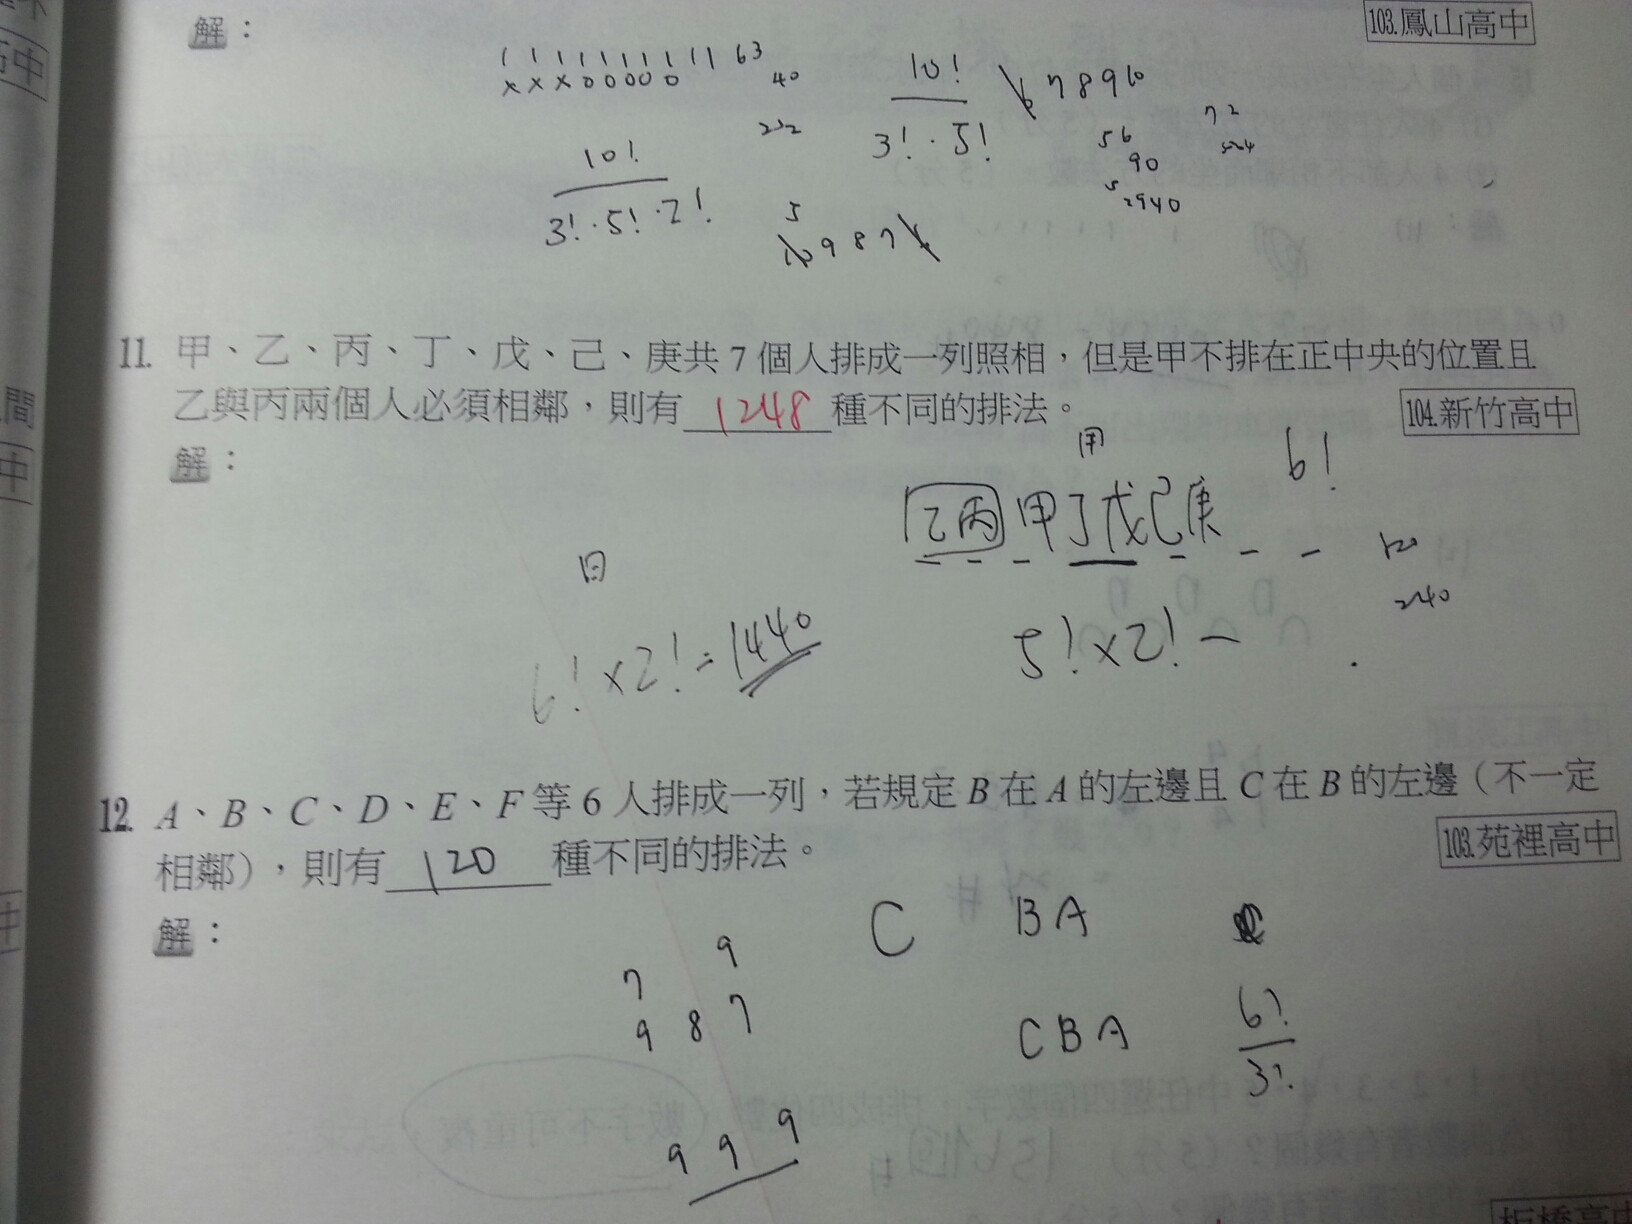 高中
解：
103.鳳山高中
1 1 1 1 1 1 1 1 1 1 63
x x x 0 0 0 0 0
40
10!
3!·5!
7 8 9 10
72
56
90
10!
3!·5!·2!
5
10 9 8 7 6
11. 甲、乙、丙、丁、戊、己、庚共7個人排成一列照相，但是甲不排在正中央的位置且
乙與丙兩個人必須相鄰，則有 1248 種不同的排法。
104.新竹高中
解：
6!
乙丙 甲丁戊己庚
120
240
6!×2!=1440
5!×2!－
12. A、B、C、D、E、F等6人排成一列，若規定B在A的左邊且C在B的左邊（不一定
相鄰），則有 120 種不同的排法。
103.苑裡高中
解：
C BA
9
7
9 8 7
CBA
6!
3!
9 9 9
間
中
中
板橋高中